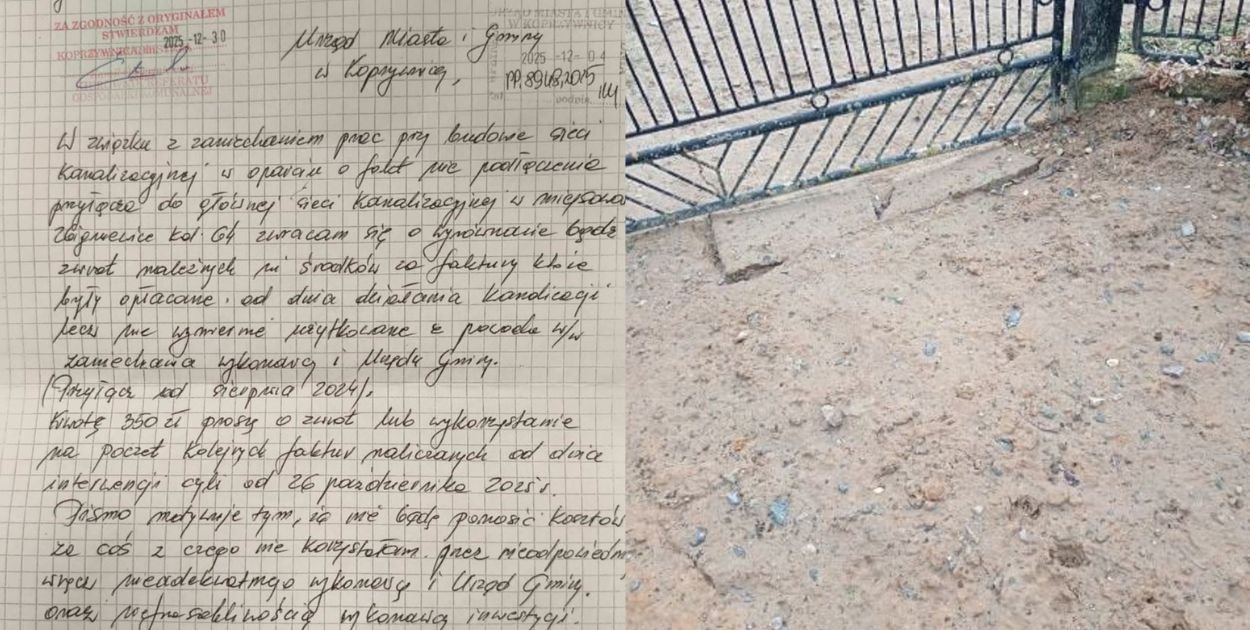 ZA ZGODNOŚĆ Z ORYGINAŁEM
STWIERDZAM
KOPRZYWNICA, dnia 2025 -12- 30
Urząd Miasta i Gminy
w Koprzywnicy,
URZĄD MIASTA I GMINY
W KOPRZYWNICY
2025 -12- 04
podpis
W związku z zaniechaniem prac przy budowie sieci
kanalizacyjnej w oparciu o fakt nie podłączenia
przyłącza do głównej sieci kanalizacyjnej w miejscow
Zbigniewice kol. 64 zwracam się o wyrównanie bądź
zwrot należnych mi środków za faktury które
były opłacane od dnia działania kanalizacji
lecz nie użytkowane z powodu w/w
zaniechania wykonawcy i Urzędu Gminy.
(Przyłącz od sierpnia 2024).
Kwotę 350 zł proszę o zwrot lub wykorzystanie
na poczet kolejnych faktur naliczanych od dnia
interwencji czyli od 26 października 2025 r.
Pismo motywuje tym, że nie będę ponosić kosztów
za coś z czego nie korzystałam przez nieodpowiedn
wręcz nieadekwatnego wykonawcę i Urząd Gminy.
oraz wykonawcą inwestycji.